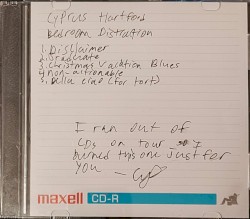 Cyprus Hartford
Bedroom Distraction
1. Disclaimer
2. Graduate
3. Christmas Vacation Blues
4. non-actionable
5. Bella Ciao (for tort)
I ran out of
CDs on tour - I
burned this one just for
you -
maxell CD-R